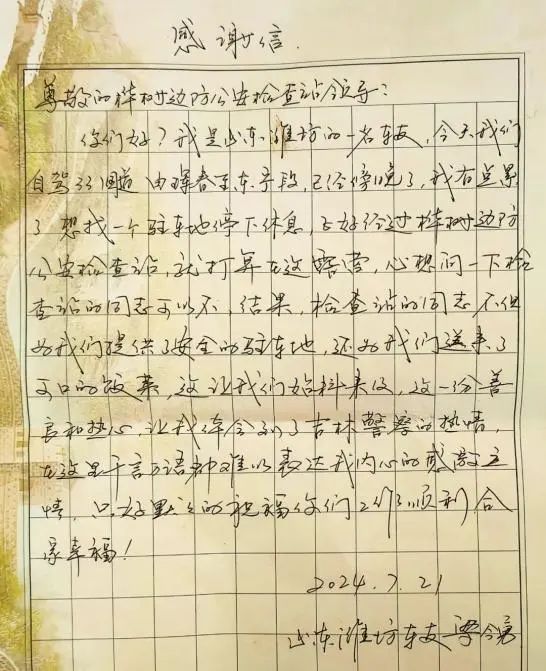 感谢信.
尊敬的桦树边防公安检查站领导：
你们好？我是山东潍坊的一名车友，今天我们
自驾331国道 由珲春至东宁段，已经傍晚了，我有点累
了 想找一个驻车地停下休息，正好经过桦树边防
公安检查站，就打算在这露营，心想问一下检
查站的同志可以不，结果，检查站的同志不但
为我们提供了安全的驻车地，还为我们送来了
可口的饭菜，这让我们始料未及，这一份善
良和热心 让我体会到了吉林警察的热情，
在这里千言万语都难以表达我内心的感激之
情，只好默默的祝福你们工作顺利 合
家幸福！
2024.7.21
山东潍坊车友